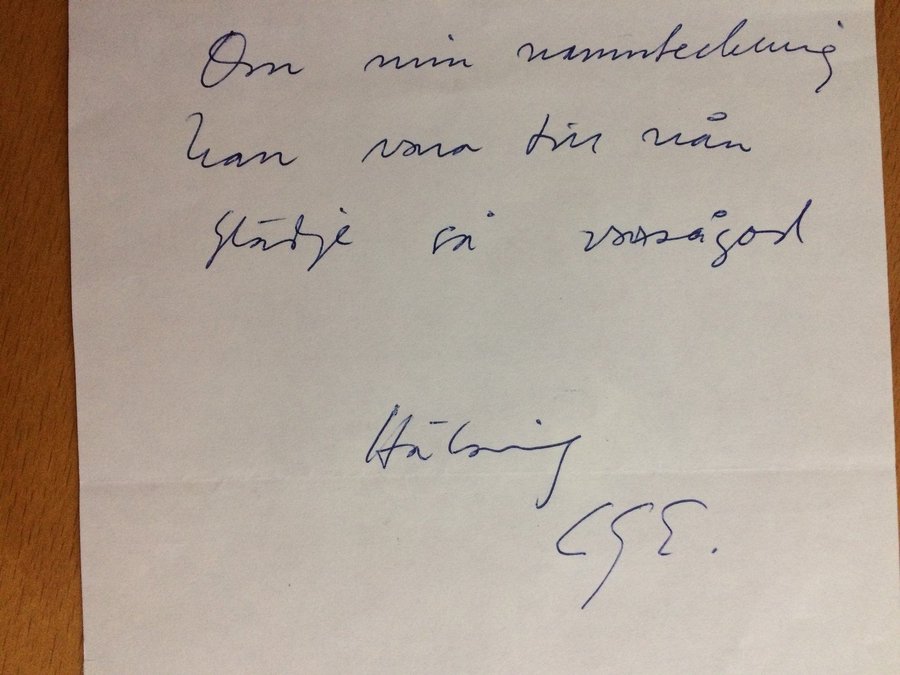 Om min namnteckning
kan vara till nån
glädje så varsågod
Hälsning
CGE.